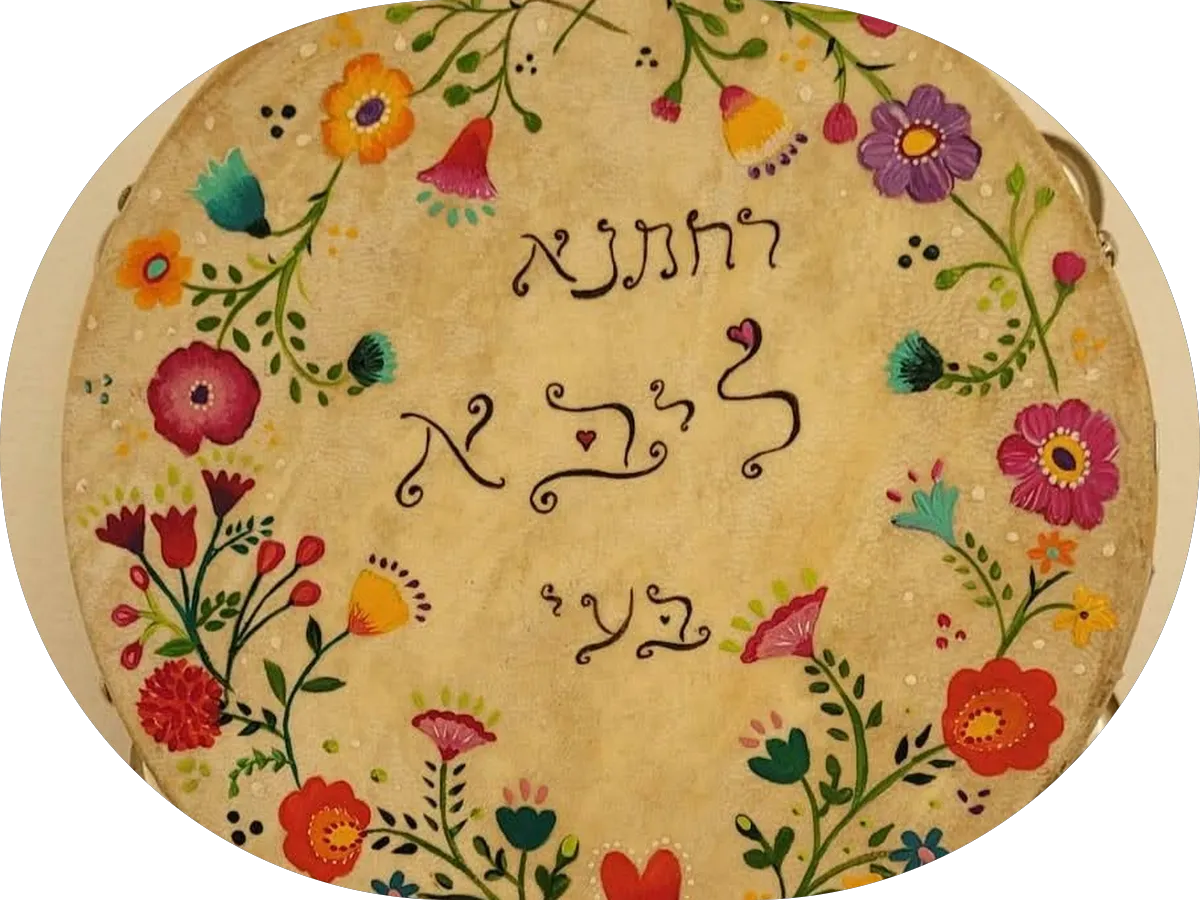 רחמנא
ליבא
בעי